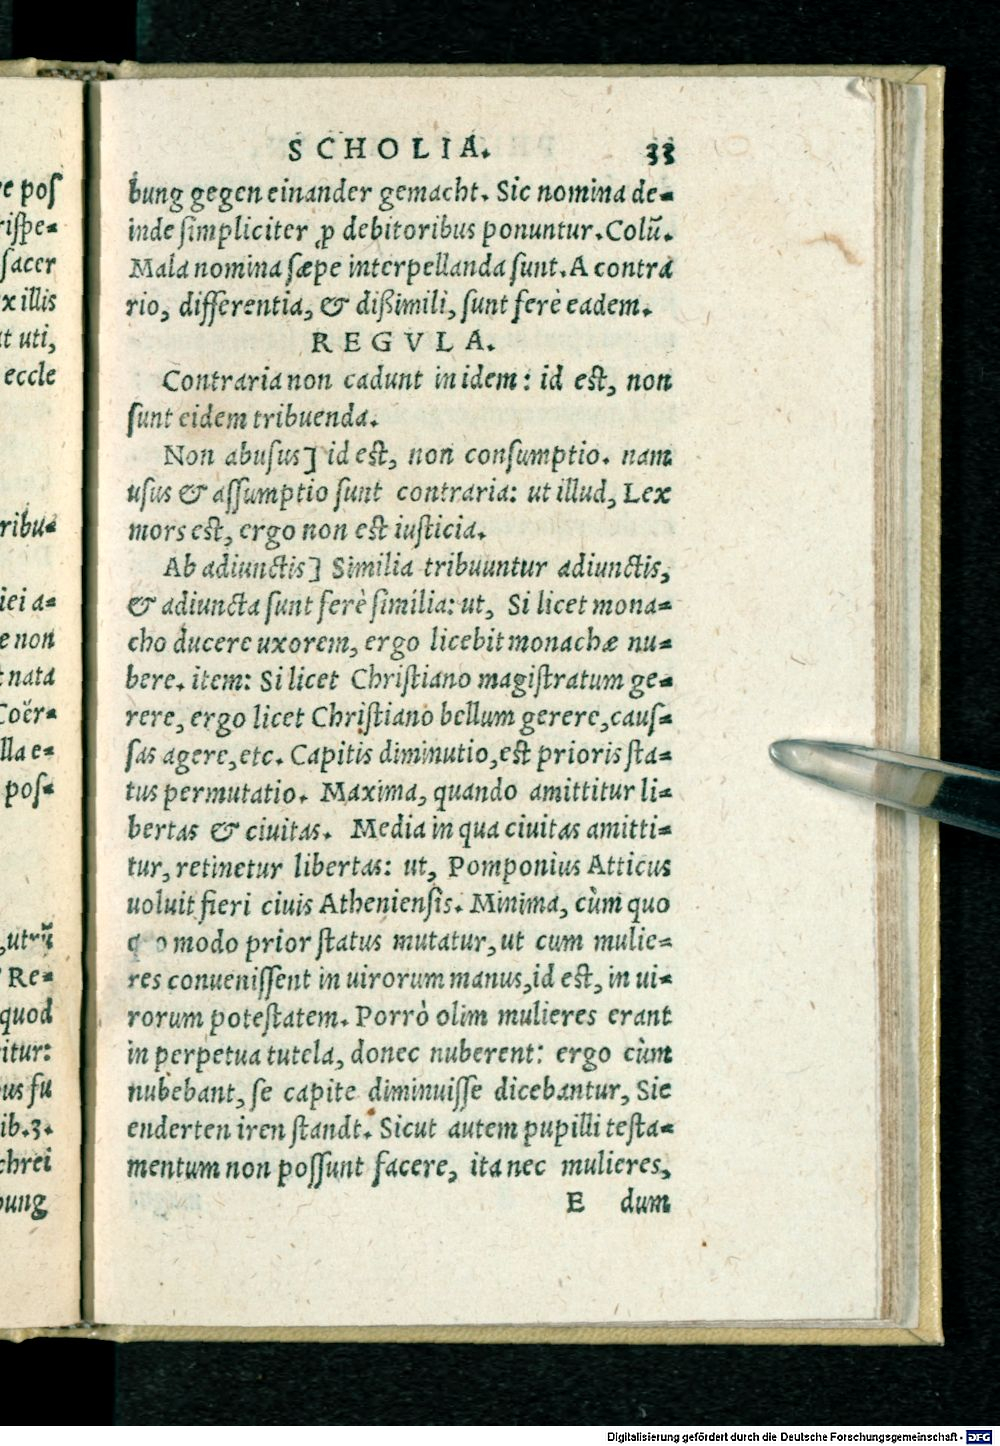 SCHOLIA. 33
bung gegen einander gemacht. Sic nomina de-
inde simpliciter ꝓ debitoribus ponuntur. Colũ.
Mala nomina sæpe interpellanda sunt. A contra
rio, differentia, & dißimili, sunt ferè eadem.
REGVLA.
Contraria non cadunt in idem: id est, non
sunt eidem tribuenda.
Non abusus] id est, non consumptio. nam
usus & assumptio sunt contraria: ut illud, Lex
mors est, ergo non est iusticia.
Ab adiunctis] Similia tribuuntur adiunctis,
& adiuncta sunt ferè similia: ut, Si licet mona-
cho ducere uxorem, ergo licebit monachæ nu-
bere. item: Si licet Christiano magistratum ge-
rere, ergo licet Christiano bellum gerere, caus-
sas agere, etc. Capitis diminutio, est prioris sta-
tus permutatio. Maxima, quando amittitur li-
bertas & ciuitas. Media in qua ciuitas amitti-
tur, retinetur libertas: ut, Pomponius Atticus
uoluit fieri ciuis Atheniensis. Minima, cùm quo
q o modo prior status mutatur, ut cum mulie-
res conuenissent in uirorum manus, id est, in ui-
rorum potestatem. Porrò olim mulieres erant
in perpetua tutela, donec nuberent: ergo cùm
nubebant, se capite diminuisse dicebantur, Sie
enderten iren standt. Sicut autem pupilli testa-
mentum non possunt facere, ita nec mulieres,
E dum
e pos
rispe-
sacer
x illis
t uti,
eccle
ribu-
iei a-
e non
nata
Coër-
lla e-
pos-
,utrũ
Re-
quod
itur:
us fu
ib.3.
chrei
bung
Digitalisierung gefördert durch die Deutsche Forschungsgemeinschaft - DFG